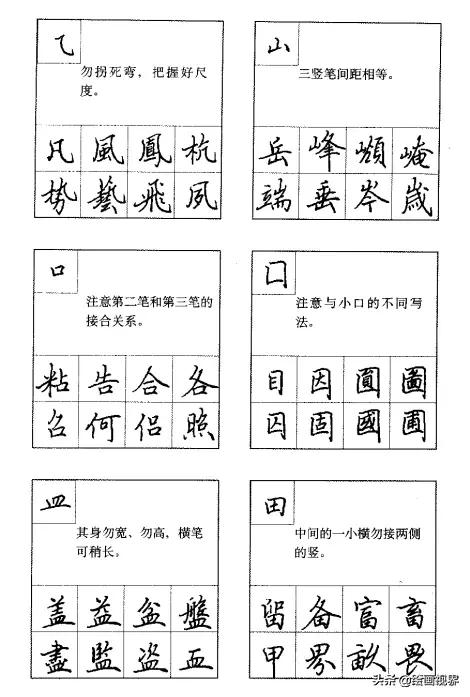 乁
勿拐死弯，把握好尺
度。
凡風鳳杭
勢藝飛夙
山
三竖笔间距相等。
岳峰崸崦
端垂岑歲
口
注意第二笔和第三笔的
接合关系。
粘告合各
召何侣照
囗
注意与小口的不同写
法。
目因圓圖
囚固國圃
皿
其身勿宽、勿高，横笔
可稍长。
盖益盆盤
盡監盗血
田
中间的一小横勿接两侧
的竖。
留备富畜
甲界畝畏
头条@绘画视界